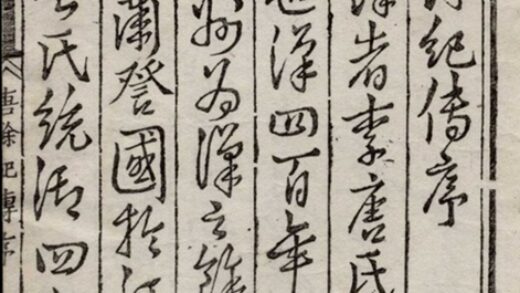 紀傳序
者李唐氏
漢四百年
州為漢之餘
蘭登國於
氏統御四
唐餘紀傳序